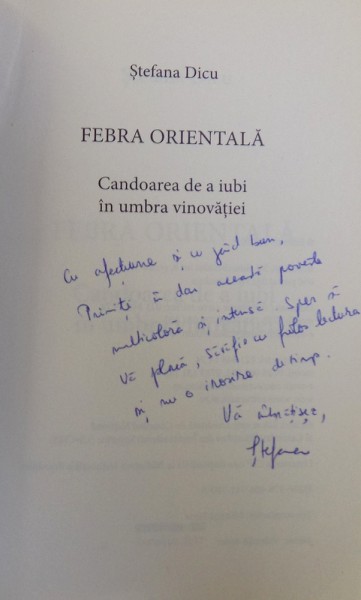 Ștefana Dicu
FEBRA ORIENTALĂ
Candoarea de a iubi
în umbra vinovăției
Cu afecțiune și cu gând bun,
Primiți în dar această poveste
multicoloră și intensă. Sper să
Vă placă, să fie cu folos lectura
și nu o irosire de timp.
Vă îmbrățișez,
Ștefana